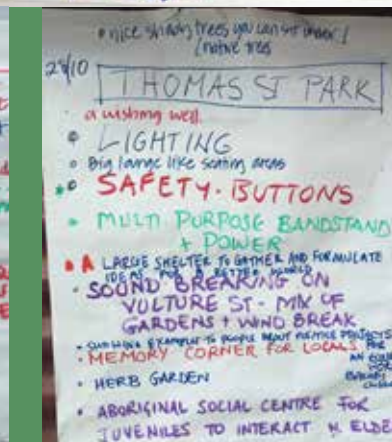 • nice shady trees you can sit under /
/ native trees
28/10
THOMAS ST PARK
• a wishing well
• LIGHTING
• Big lounge like seating areas
• SAFETY. BUTTONS
• MULTI PURPOSE BANDSTAND
+ POWER
• A LARGE SHELTER TO GATHER AND FORMULATE
IDEAS FOR A BETTER WORLD
• SOUND BREAKING ON
VULTURE ST - MIX OF
GARDENS + WIND BREAK
• EXAMPLES TO PEOPLE ABOUT POSITIVE PROJECTS FOR
• MEMORY CORNER FOR LOCALS
AN
• HERB GARDEN
• ABORIGINAL SOCIAL CENTRE FOR
JUVENILES TO INTERACT W. ELDE